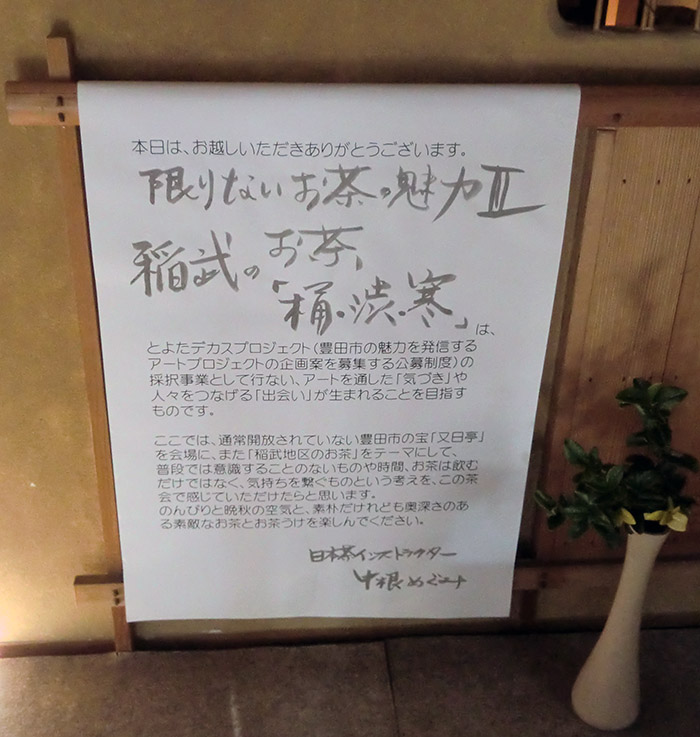 本日は、お越しいただきありがとうございます。
限りないお茶の魅力Ⅱ
稲武のお茶、
「桶・渋・寒」は、
とよたデカスプロジェクト(豊田市の魅力を発信する
アートプロジェクトの企画案を募集する公募制度)の
採択事業として行ない、アートを通した「気づき」や
人々をつなげる「出会い」が生まれることを目指す
ものです。
ここでは、通常開放されていない豊田市の宝「又日亭」
を会場に、また「稲武地区のお茶」をテーマにして、
普段では意識することのないものや時間、お茶は飲む
だけではなく、気持ちを繋ぐものという考えを、この茶
会で感じていただけたらと思います。
のんびりと晩秋の空気と、素朴だけれども奥深さのあ
る素敵なお茶とお茶うけを楽しんでください。
日本茶インストラクター
中根めぐみ